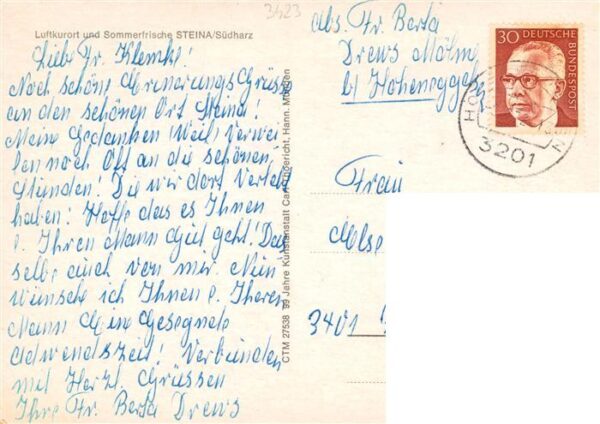 3423
Luftkurort und Sommerfrische STEINA/Südharz
Liebe Fr. Klemke!
Noch schöne Erinerungs Grüsse
an den schönen Ort Steina!
Meine Gedanken Weil Verwei
len noch Oft an die schönen
Stunden! Die wir dort Verlebt
haben! Hoffe das es Ihnen
u. Ihren Mann Gut geht! Das
selbe auch von mir. Nun
wünsche ich Ihnen u. Ihrem
Mann Eine Gesegnete
Adwendszeit! Verbunden
mit Herzl. Grüssen
Ihre Fr. Berta Drews
CTM 27538 99 Jahre Kunstanstalt Carl Hann. Münden
Abs. Fr. Berta
Drews Mölme
b/ Hoheneggels
30 DEUTSCHE
BUNDESPOST
3201
Frau
Else
3401